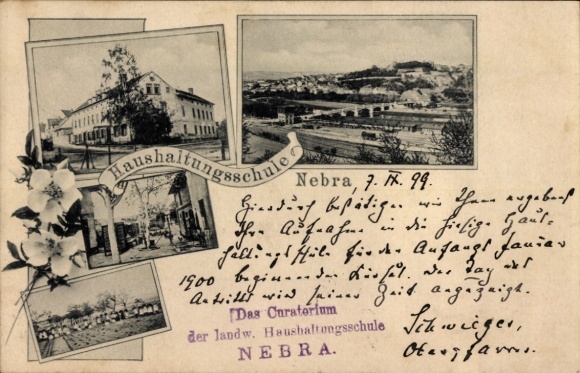 Haushaltungsschule
Nebra, 7. IX. 99.
Hierdurch bestätigen wir Ihnen ergebenst
Ihre Aufnahme in die hiesige Haus-
haltungsschule für den Anfangs Januar
1900 beginnenden Kursus. Der Tag des
Antritts wird seiner Zeit angezeigt.
Das Curatorium
der landw. Haushaltungsschule
NEBRA.
Schwieger,
Oberpfarrer.